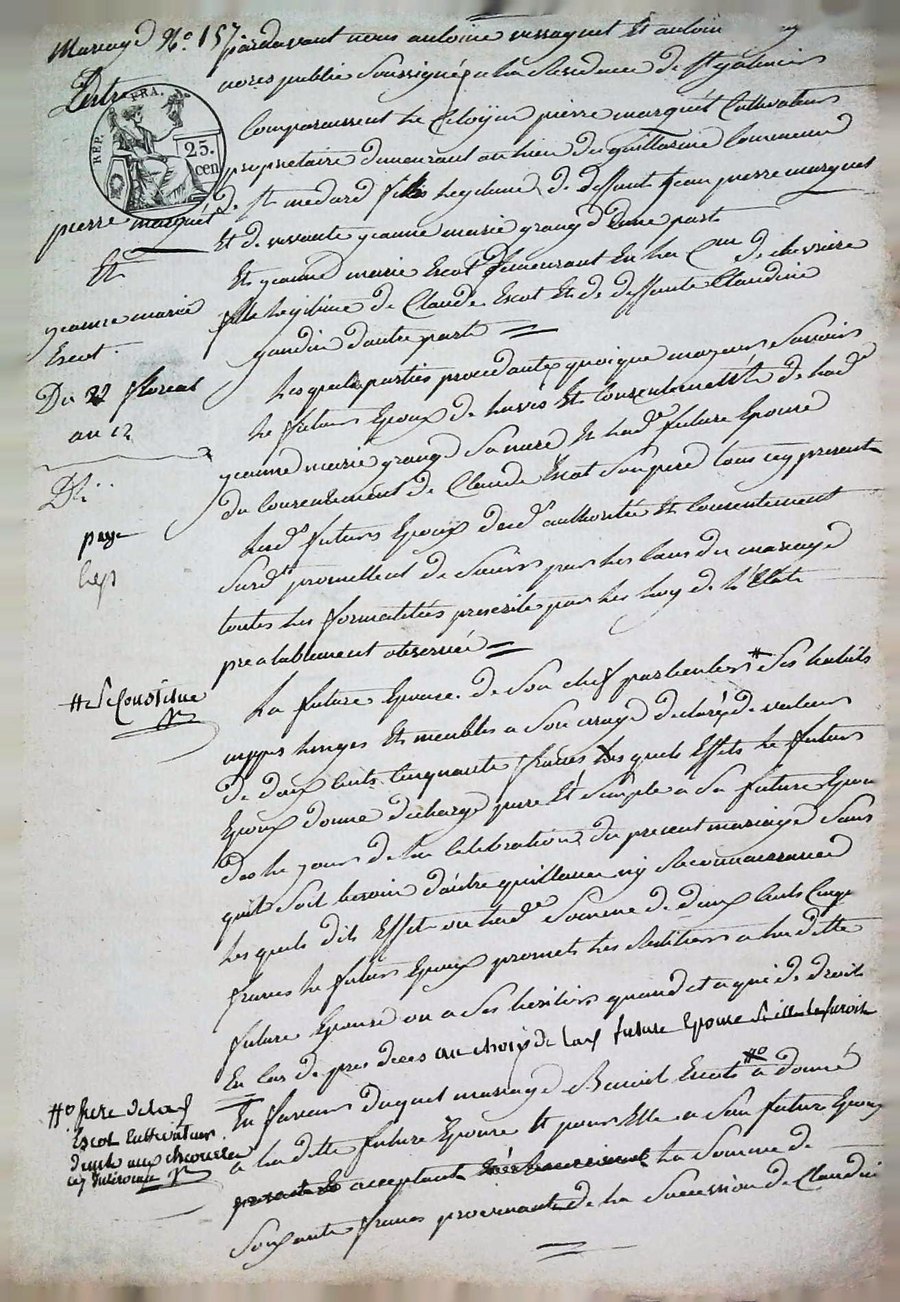 Mariage N.o 157
Entre
REP. FRA.
25. cen
pierre marquet
Et
jeanne marie
Escot
Du 22 floreal
an 12
paye
pardevant nous antoine et antoine
nores publics soussignés a la Residence de St galmier
Comparaissent le Citoyen pierre marquet Cultivateur
proprietaire demeurant au lieu de commune
de st medard fils legitime de deffunt jean pierre marquet
Et de vivante jeanne marie grangé d'une part
Et jeanne marie Escot demeurant En la Cne de chevriere
fille legitime de Claude Escot Et de deffunte Claudine
gaudin d'autre part
Lesquels parties procedantes quoique mageurs savoir
le futur Epoux de l'avis Et consentement de lade
jeanne marie grangé sa mere Et lade future Epouse
du consentement de Claude Escot son pere tous icy present
Lesds futurs Epoux desds authorité Et consentement
surds promettent de s'unir par les liens du mariage
toutes les formalitées prescrite par les loix de L'Etat
prealablement observée
# Se Constitue
La future Epouse de son chef particulier # ses habits
nippes linges Et meubles a son usage declaré de valeur
de deux cents cinquante francs lesquels Effets le futur
Epoux donne decharge pure Et simple a sa future Epouse
des le jour de la Celebration du present mariage sans
quil soit besoin d'autre quittance ny Reconnaissance
Lesquels dits Effets ou lade somme de deux cents Cinqe
francs le futur Epoux promet les Restituer a la dette
future Epouse ou a ses heritiers quand et a qui de droit
En cas de predeces au choix de la d future Epouse
En faveur duquel mariage Benoit Escot #o a donné
a la dette future Epouse Et pour Elle a son futur Epoux
acceptant la somme de
soixante francs provenante de la succession de Claudine
#o frere de la d
Escot cultivateur